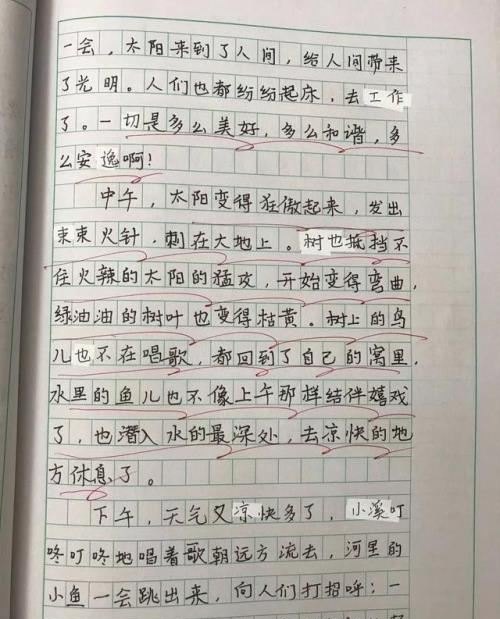 一会，太阳来到了人间，给人间带来
了光明。人们也都纷纷起床，去工作
了。一切是多么美好，多么和谐，多
么安逸啊！
中午，太阳变得狂傲起来，发出
束束火针，刺在大地上。树也抵挡不
住火辣的太阳的猛攻，开始变得弯曲，
绿油油的树叶也变得枯黄。树上的鸟
儿也不在唱歌，都回到了自己的窝里，
水里的鱼儿也不像上午那样结伴嬉戏
了，也潜入水的最深处，去凉快的地
方休息了。
下午，天气又凉快多了，小溪叮
咚叮咚地唱着歌朝远方流去，河里的
小鱼一会跳出来，向人们打招呼；一